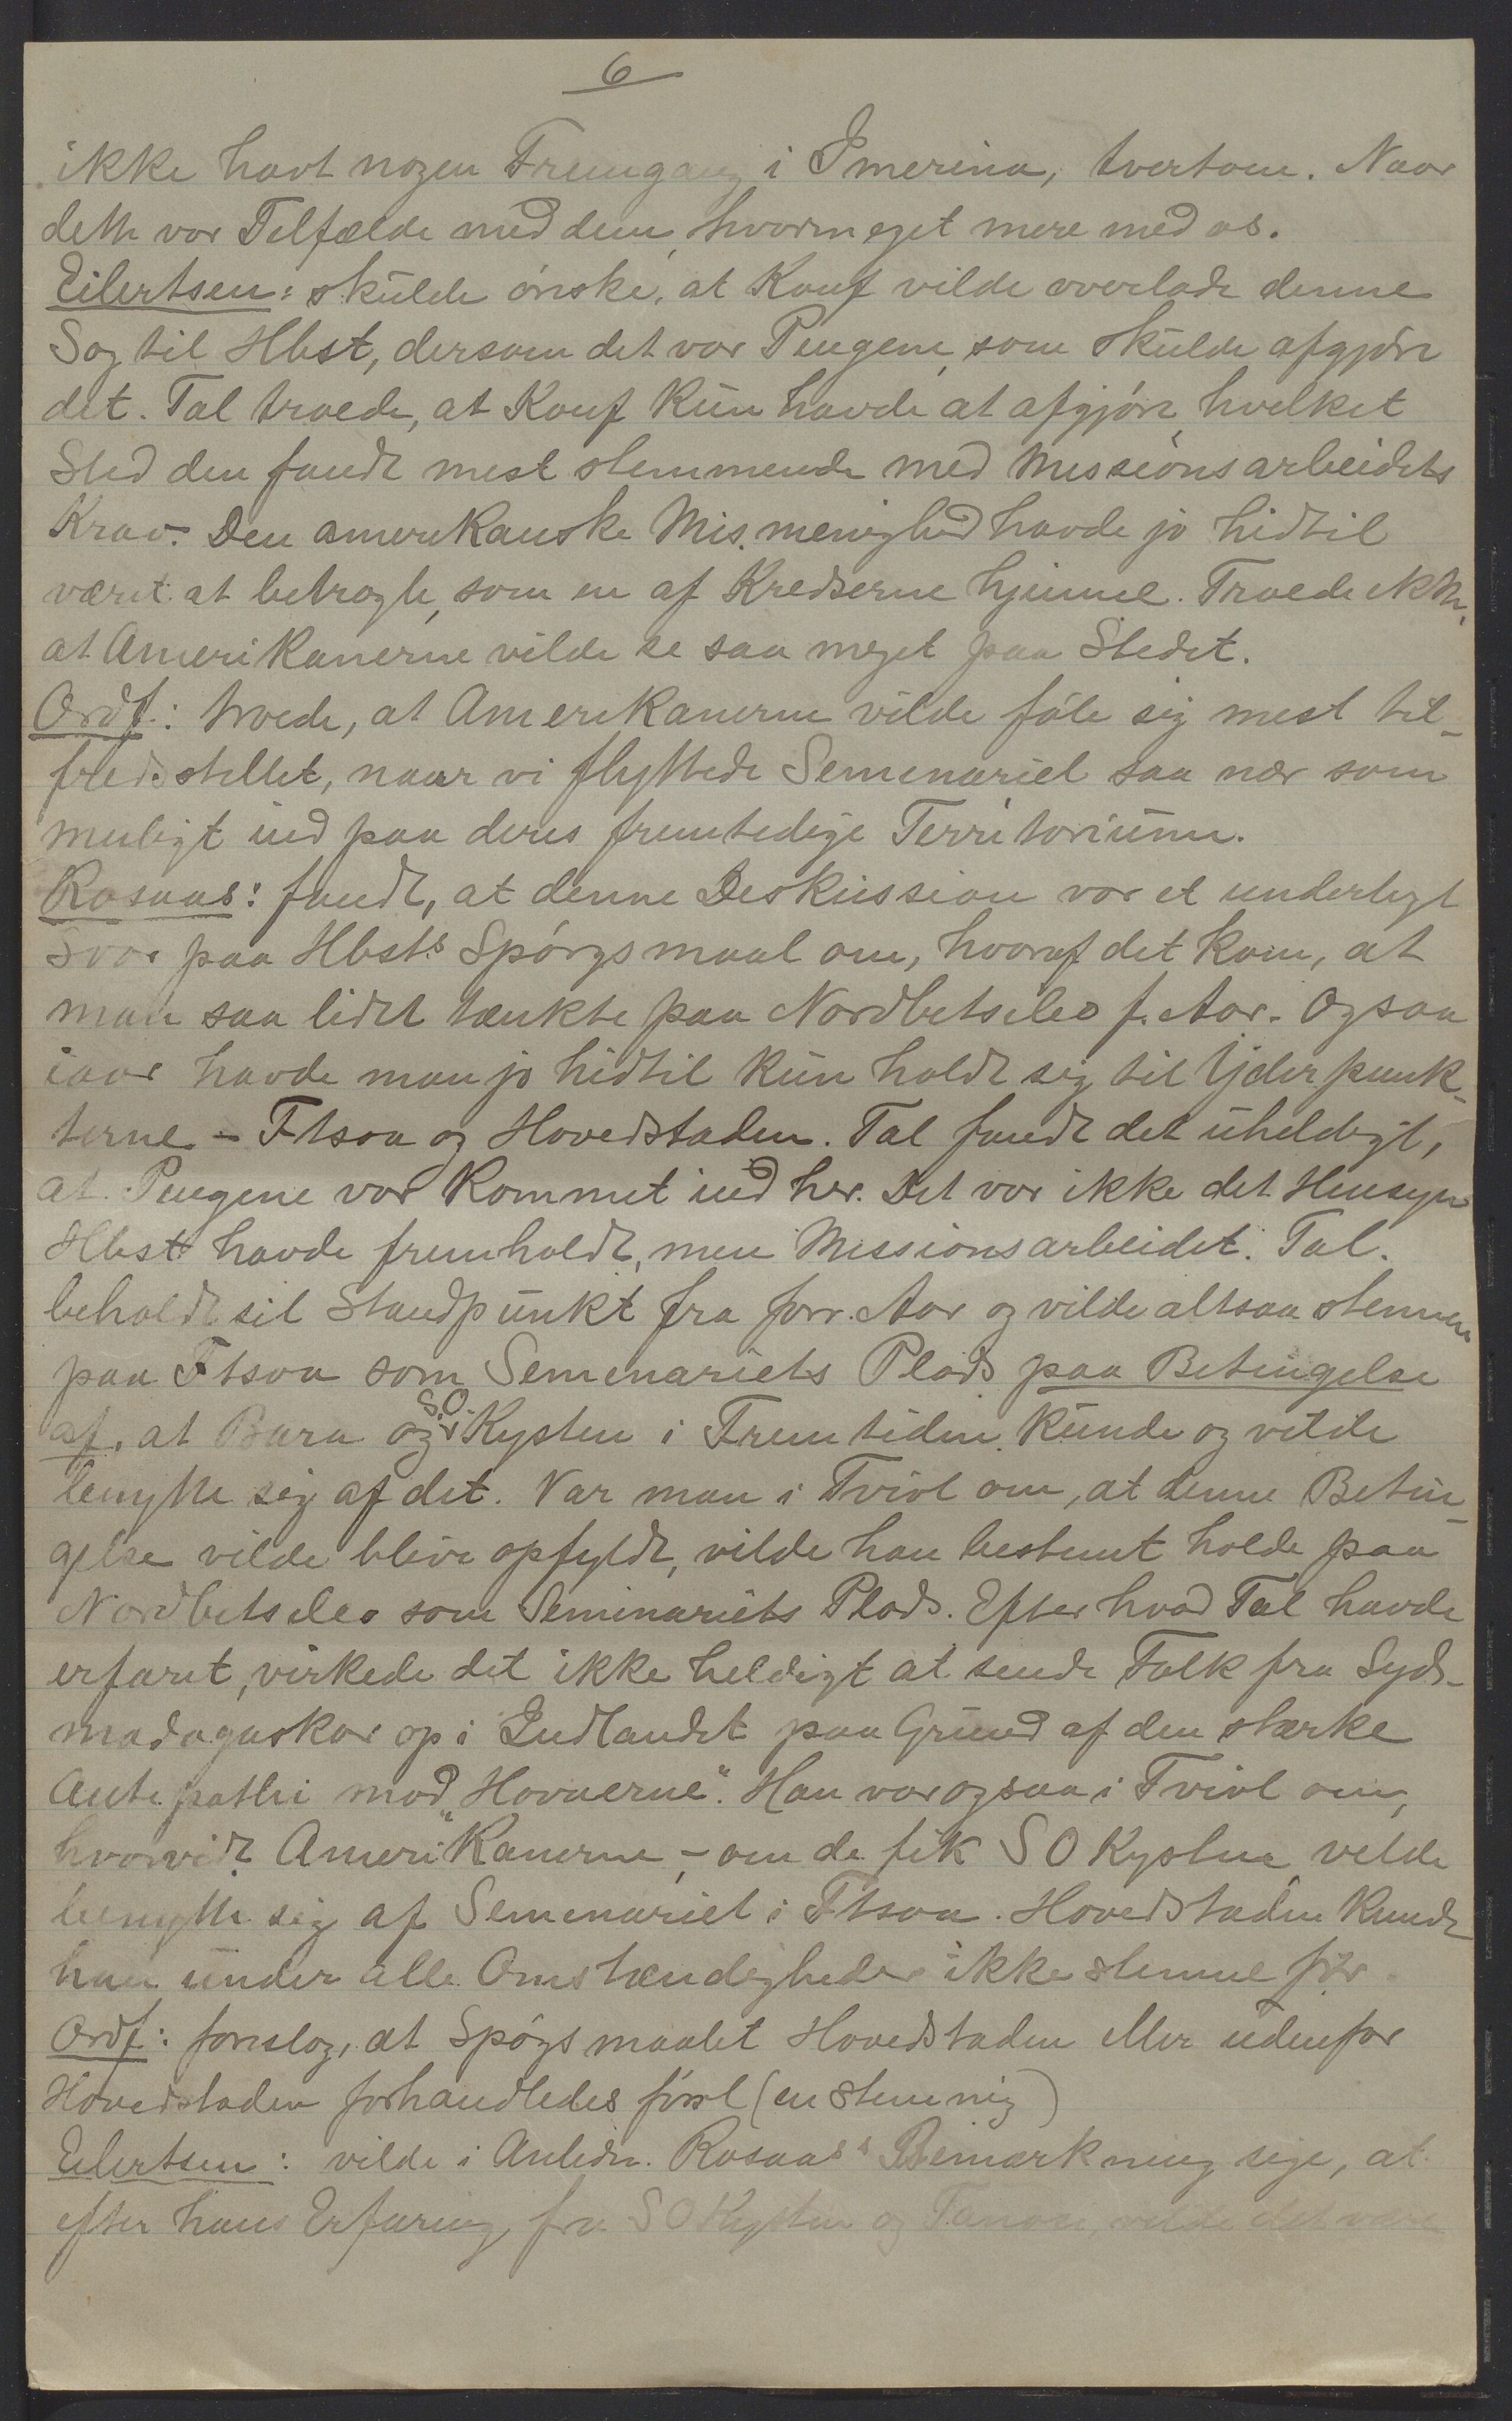 6
ikke havt nogen Fremgang i Imerina, tvertom. Naar
dette var Tilfælde med dem, hvormeget mere med os.
Eilertsen: skulde ønske, at Konf vilde overlade denne
Sag til Hbst, dersom det var Pengene, som skulde afgjøre
det. Tal troede, at Konf kun havde at afgjøre, hvilket
Sted den fandt mest stemmende med Missionsarbeidets
Krav. Den amerikanske Mis.menighed havde jo hidtil
været at betragte, som en af Kredserne hjemme. Troede ikke,
at Amerikanerne vilde se saa meget paa Stedet.
Ordf.: troede, at Amerikanerne vilde føle sig mest til-
fredsstillet, naar vi flyttede Seminariet saa nær som
muligt ind paa deres fremtidige Territorium.
Rosaas: fandt, at denne Diskussion var et underligt
Svar paa Hbst.s Spørgsmaal om, hvoraf det kom, at
man saa lidet tænkte paa Nordbetsileo f. Aar. Ogsaa
iaar havde man jo hidtil kun holdt sig til Yderpunk-
terne - Ftsoa og Hovedstaden. Tal fandt det uheldigt,
at Pengene var kommet ind her. Det var ikke det Hensyn
Hbst havde fremholdt, men Missionsarbeidet. Tal.
beholdt sit Standpunkt fra forr. Aar og vilde altsaa stemme
paa Ftsoa som Seminariets Plads paa Betingelse
af, at Bara og S.O. Kysten i Fremtiden kunde og vilde
benytte sig af det. Var man i Tvivl om, at denne Betin-
gelse vilde blive opfyldt, vilde han bestemt holde paa
Nordbetsileo som Seminariets Plads. Efter hvad Tal havde
erfaret, virkede det ikke heldigt at sende Folk fra Syd-
madagaskar op i Indlandet paa Grund af den stærke
Antipathi mod "Hovaerne". Han var ogsaa i Tvivl om,
hvorvidt Amerikanerne, - om de fik S O Kysten, vilde
benytte sig af Seminariet i Ftsoa. Hovedstaden kunde
han under alle Omstændigheder ikke stemme for.
Ordf: foreslog, at Spøgsmaalet Hovedstaden eller udenfor
Hovedstaden forhandledes først (enstemmig)
Eilertsen: vilde i Anledn. Rosaas's Bemærkning sige, at
efter hans Erfaring, fra S O Kysten og Tanosi, vilde det være